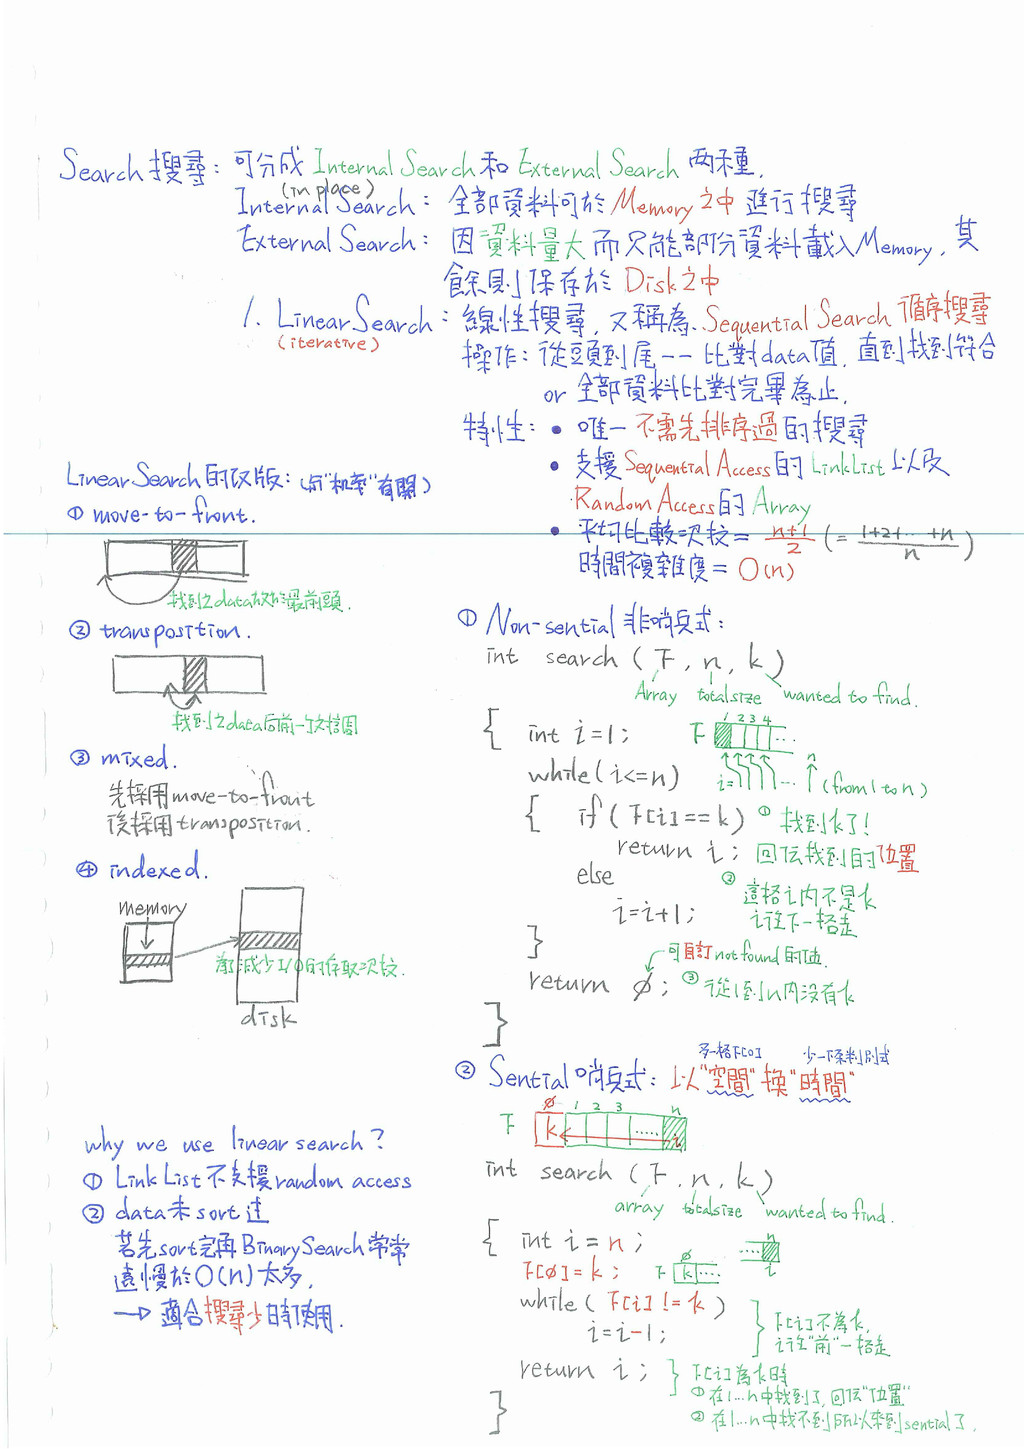 Search 搜尋：可分成 Internal Search 和 External Search 两種.
(in place)
Internal Search： 全部資料可於 Memory 之中 進行搜尋
External Search： 因 資料量大 而只能部分資料載入Memory, 其
餘則保存於 Disk 之中
1. Linear Search：線性搜尋, 又稱為 Sequential Search 循序搜尋
(iterative)
操作：從頭到尾一一比對data值, 直到找到符合
or 全部資料比對完畢為止.
特性：• 唯一 不需先排序過的搜尋
• 支援 Sequential Access的 Link List 以及
Random Access的 Array
• 平均比較次数= n+1/2 (= 1+2+...+n/n)
時間複雜度= O(n)
Linear Search 的改版：(與"机率"有關)
① move-to-front.
找到之data放於最前頭.
② transposition.
找到之data与前一格互換
③ mixed.
先採用move-to-front
後採用transposition.
④ indexed.
memory
為了減少I/O的存取次数.
disk
why we use linear search?
① Link List 不支援random access
② data未sort過
若先sort完再Binary Search 常常
遠慢於O(n)太多.
→ 適合搜尋少時使用.
① Non-sential 非哨兵式：
int search (F, n, k)
Array total size wanted to find.
{ int i=1;
F 1 2 3 4 ...
while(i<=n)
i= ... n (from 1 to n)
{ if (F[i]==k) ① 找到k了!
return i; 回伝找到的位置
else ② 這格i內不是k
i=i+1; i往下一格走
}
可自訂 not found 的值.
return ø; ③ 從1到n內沒有k
}
多一格F[0] 少一個条判別式
② Sential哨兵式：以"空間"換"時間"
ø 1 2 3 n
F k ..... i
int search (F, n, k)
array total size wanted to find.
{ int i = n;
F[ø]=k; F ø k ... n i
while (F[i] != k)
i=i-1;
} F[i]不為k,
i往"前"一格走
return i; } F[i]為k時
① 在1...n中找到了, 回伝"位置"
② 在1...n中找不到所以來到sential了.
}